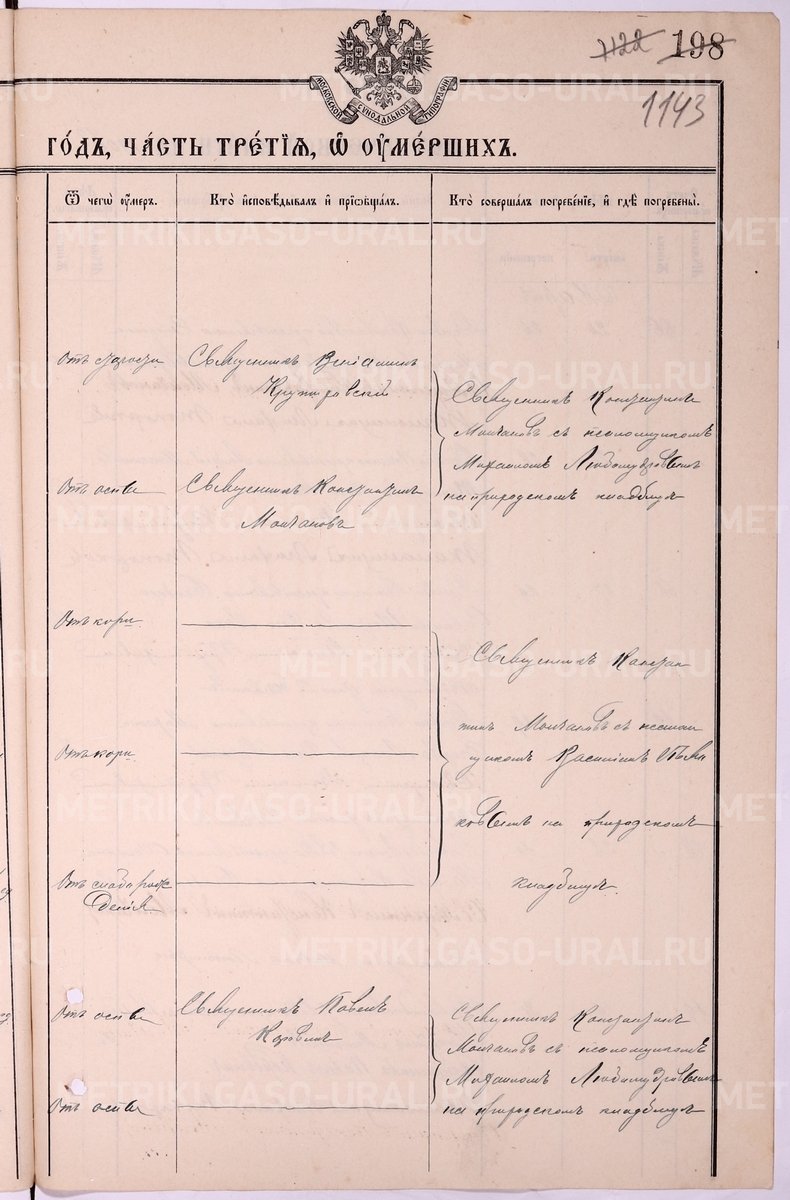 1122 198
1143
МОСКОВСКОЙ СѴНОДАЛЬНОЙ ТИПОГРАФІИ
ГО́ДЪ, ЧА́СТЬ ТРЕ́ТІЯ, Ѽ ОУМЕ́РШИХЪ.
Ѿ чегѡ̀ оу҆́меръ.
Кто̀ и҆сповѣ́дывалъ и҆ прїѡбща́лъ.
Кто̀ соверша́лъ погребе́нїе, и҆ гдѣ̀ погребены̀.
Отъ старости
Священникъ Веніаминъ
Священникъ Константинъ
Молчановъ съ псаломщикомъ
Михаиломъ Любомудровымъ
на приходскомъ кладбищѣ
Отъ оспы
Священникъ Константинъ
Молчановъ
Отъ кори
Священникъ Констан
Отъ кори
тинъ Молчановъ съ псалом
щикомъ Василіемъ
на приходскомъ
кладбищѣ
Отъ слабаго рож
денія
Отъ оспы
Священникъ Павелъ
Священникъ Константинъ
Молчановъ съ псаломщикомъ
Михаиломъ Любомудровымъ
на приходскомъ кладбищѣ
Отъ оспы
METRIKI.GASO-URAL.RU